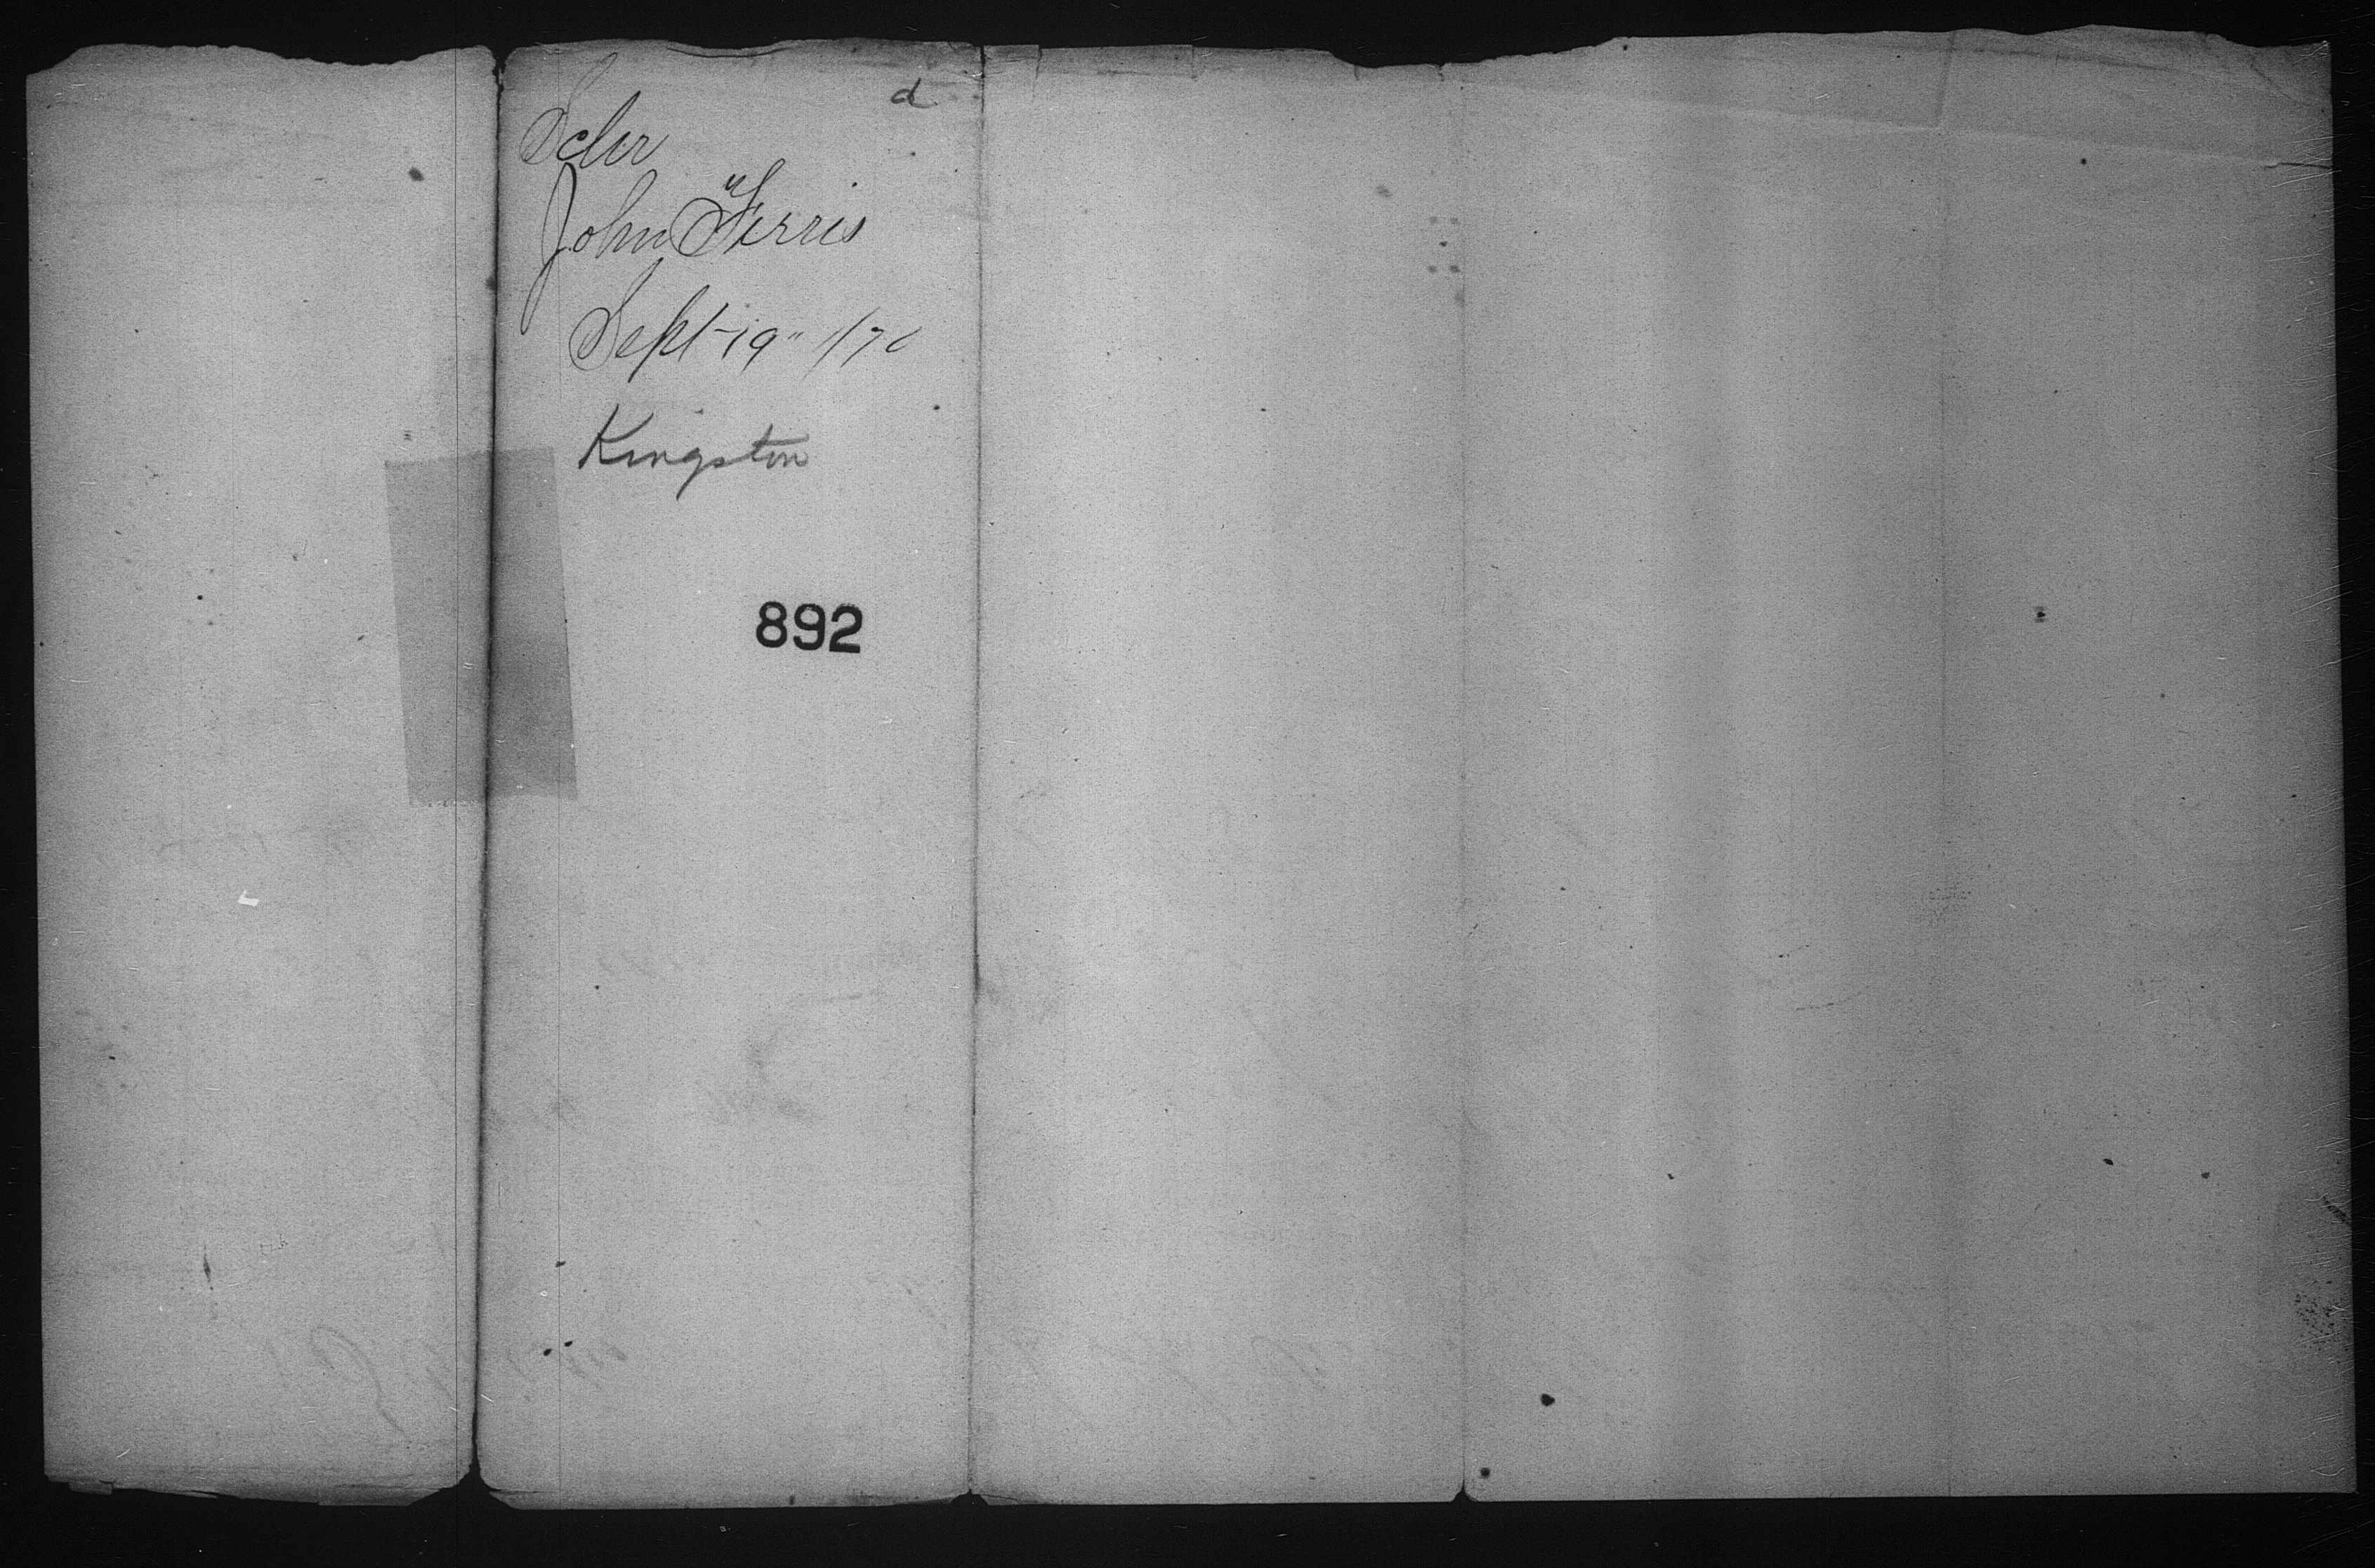 d
Schr
John Ferris
Sept 19" /70
Kingston
892